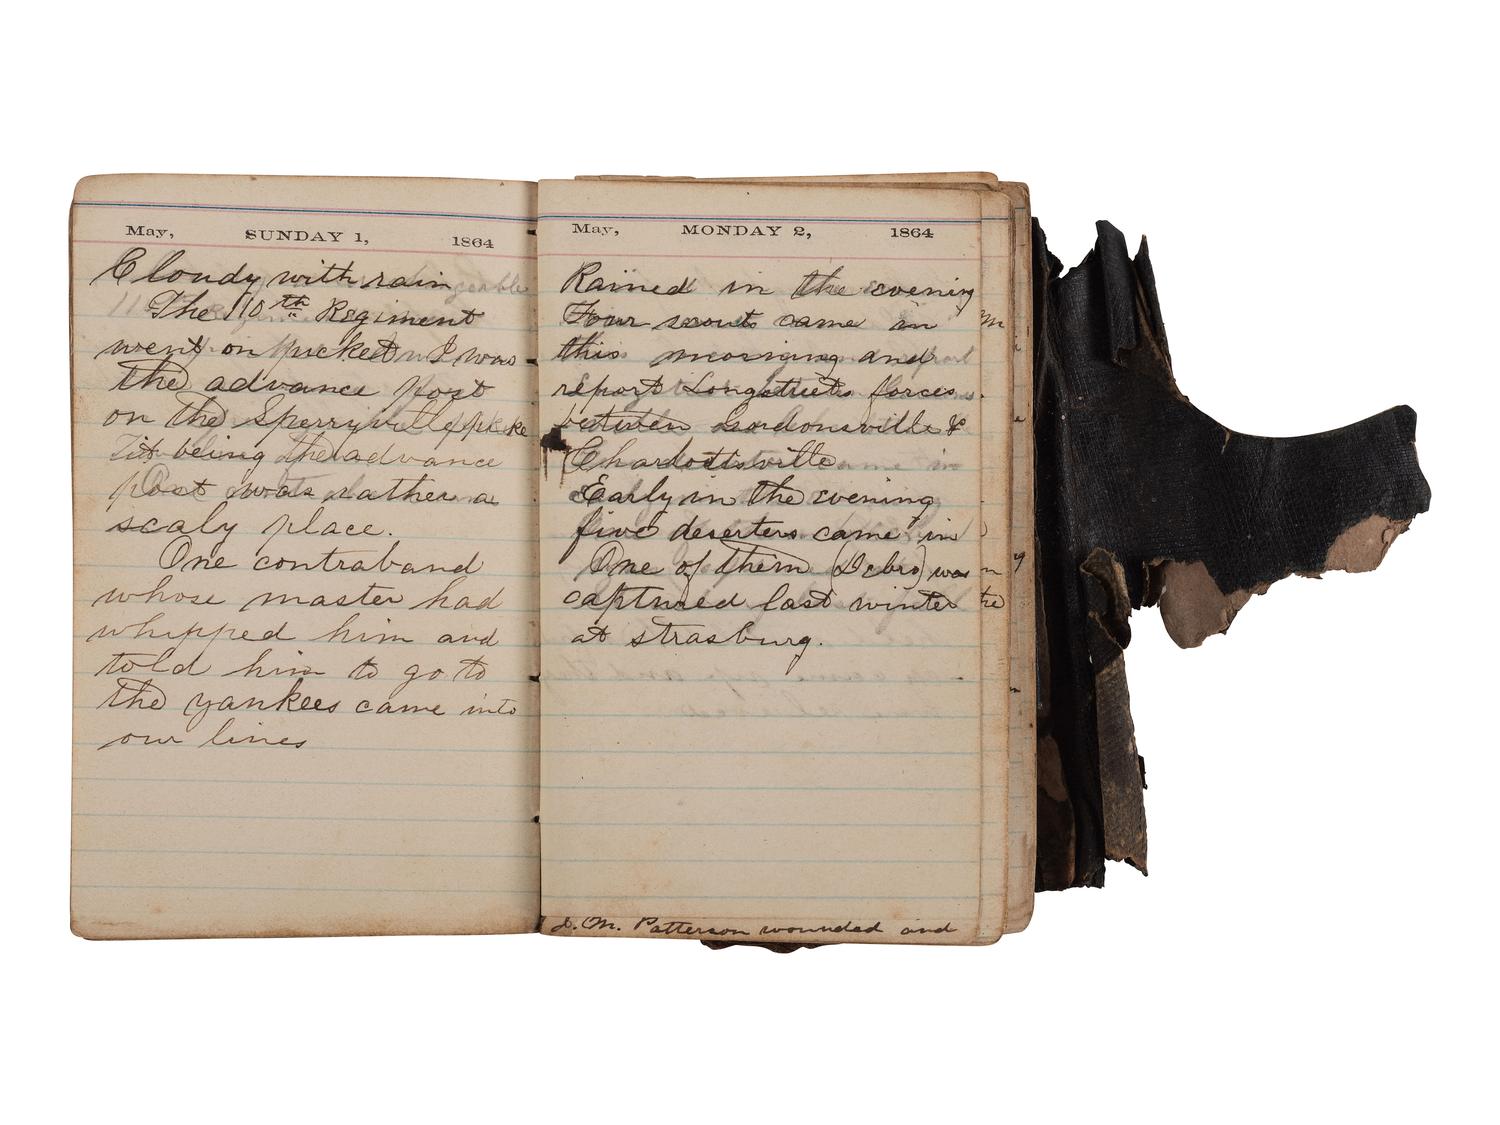 May, SUNDAY 1, 1864
Cloudy with rain
The 110th Regiment
went on picket I was
the advance post
on the Sperryville pike
It being the advance
Post was rather a
scaly place.
One contraband
whose master had
whipped him and
told him to go to
the yankees came into
our lines
May, MONDAY 2, 1864
Rained in the evening
Four scouts came in
this morning and
report Longstreets forces
between Gordonsville &
Charlottsville
Early in the evening
five deserters came in
One of them was
captured last winter
at strasburg.
J. M. Patterson wounded and